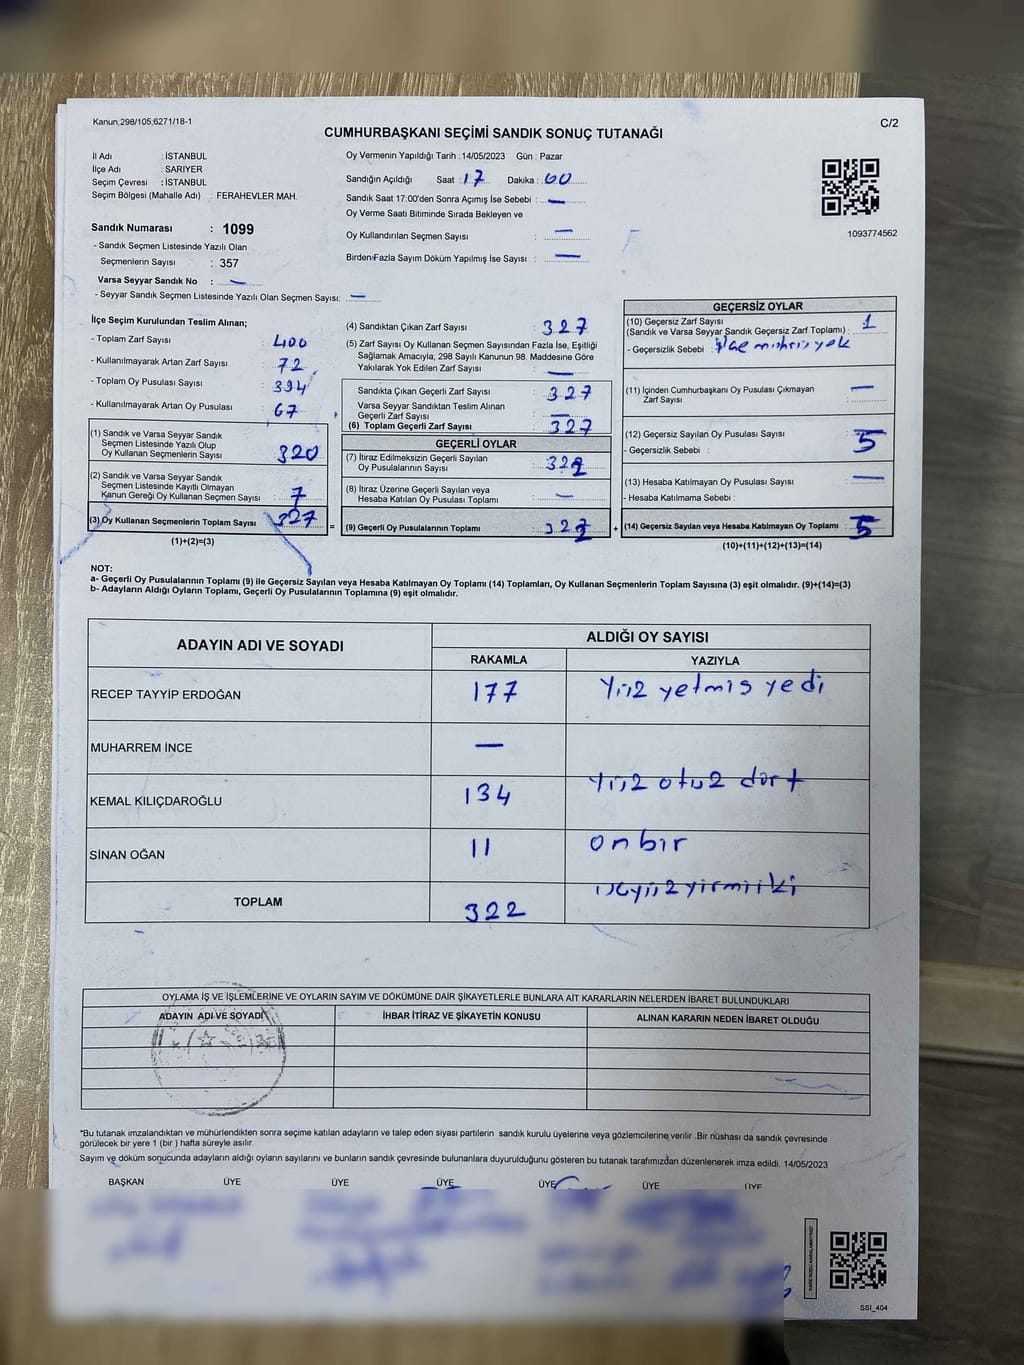 Kanun,298/105,6271/18-1
C/2
CUMHURBAŞKANI SEÇİMİ SANDIK SONUÇ TUTANAĞI
İl Adı : İSTANBUL
İlçe Adı : SARIYER
Seçim Çevresi : İSTANBUL
Seçim Bölgesi (Mahalle Adı) : FERAHEVLER MAH.
Sandık Numarası : 1099
- Sandık Seçmen Listesinde Yazılı Olan
Seçmenlerin Sayısı : 357
Varsa Seyyar Sandık No : —
- Seyyar Sandık Seçmen Listesinde Yazılı Olan Seçmen Sayısı: —
Oy Vermenin Yapıldığı Tarih : 14/05/2023 Gün : Pazar
Sandığın Açıldığı Saat : 17 Dakika : 00
Sandık Saat 17:00'den Sonra Açımış İse Sebebi : —
Oy Verme Saati Bitiminde Sırada Bekleyen ve
Oy Kullandırılan Seçmen Sayısı : —
Birden Fazla Sayım Döküm Yapılmış İse Sayısı : —
1093774562
İlçe Seçim Kurulundan Teslim Alınan;
- Toplam Zarf Sayısı : 400
- Kullanılmayarak Artan Zarf Sayısı : 72
- Toplam Oy Pusulası Sayısı : 394
- Kullanılmayarak Artan Oy Pusulası : 67
(1) Sandık ve Varsa Seyyar Sandık
Seçmen Listesinde Yazılı Olup
Oy Kullanan Seçmenlerin Sayısı : 320
(2) Sandık ve Varsa Seyyar Sandık
Seçmen Listesinde Kayıtlı Olmayan
Kanun Gereği Oy Kullanan Seçmen Sayısı : 7
(3) Oy Kullanan Seçmenlerin Toplam Sayısı : 327 =
(1)+(2)=(3)
(4) Sandıktan Çıkan Zarf Sayısı : 327
(5) Zarf Sayısı Oy Kullanan Seçmen Sayısından Fazla İse, Eşitliği
Sağlamak Amacıyla; 298 Sayılı Kanunun 98. Maddesine Göre
Yakılarak Yok Edilen Zarf Sayısı : —
Sandıkta Çıkan Geçerli Zarf Sayısı : 327
Varsa Seyyar Sandıktan Teslim Alınan
Geçerli Zarf Sayısı : —
(6) Toplam Geçerli Zarf Sayısı : 327
GEÇERLİ OYLAR
(7) İtiraz Edilmeksizin Geçerli Sayılan
Oy Pusulalarının Sayısı : 322
(8) İtiraz Üzerine Geçerli Sayılan veya
Hesaba Katılan Oy Pusulası Toplamı : —
(9) Geçerli Oy Pusulalarının Toplamı : 322 +
GEÇERSİZ OYLAR
(10) Geçersiz Zarf Sayısı
(Sandık ve Varsa Seyyar Sandık Geçersiz Zarf Toplamı) : 1
- Geçersizlik Sebebi : yok
(11) İçinden Cumhurbaşkanı Oy Pusulası Çıkmayan
Zarf Sayısı : —
(12) Geçersiz Sayılan Oy Pusulası Sayısı : 5
- Geçersizlik Sebebi :
(13) Hesaba Katılmayan Oy Pusulası Sayısı : —
- Hesaba Katılmama Sebebi :
(14) Geçersiz Sayılan veya Hesaba Katılmayan Oy Toplamı : 5
(10)+(11)+(12)+(13)=(14)
NOT:
a- Geçerli Oy Pusulalarının Toplamı (9) ile Geçersiz Sayılan veya Hesaba Katılmayan Oy Toplamı (14) Toplamları, Oy Kullanan Seçmenlerin Toplam Sayısına (3) eşit olmalıdır. (9)+(14)=(3)
b- Adayların Aldığı Oyların Toplamı, Geçerli Oy Pusulalarının Toplamına (9) eşit olmalıdır.
ADAYIN ADI VE SOYADI
ALDIĞI OY SAYISI
RAKAMLA YAZIYLA
RECEP TAYYİP ERDOĞAN 177 Yüz yetmiş yedi
MUHARREM İNCE —
KEMAL KILIÇDAROĞLU 134 Yüz otuz dört
SİNAN OĞAN 11 onbir
TOPLAM 322 üçyüzyirmiiki
OYLAMA İŞ VE İŞLEMLERİNE VE OYLARIN SAYIM VE DÖKÜMÜNE DAİR ŞİKAYETLERLE BUNLARA AİT KARARLARIN NELERDEN İBARET BULUNDUKLARI
ADAYIN ADI VE SOYADI İHBAR İTİRAZ VE ŞİKAYETİN KONUSU ALINAN KARARIN NEDEN İBARET OLDUĞU
*Bu tutanak imzalandıktan ve mühürlendikten sonra seçime katılan adayların ve talep eden siyasi partilerin sandık kurulu üyelerine veya gözlemcilerine verilir .Bir nüshası da sandık çevresinde
görülecek bir yere 1 (bir ) hafta süreyle asılır.
Sayım ve döküm sonucunda adayların aldığı oyların sayılarını ve bunların sandık çevresinde bulunanlara duyurulduğunu gösteren bu tutanak tarafımızdan düzenlenerek imza edildi. 14/05/2023
BAŞKAN ÜYE ÜYE ÜYE ÜYE ÜYE ÜYE
SSI_404